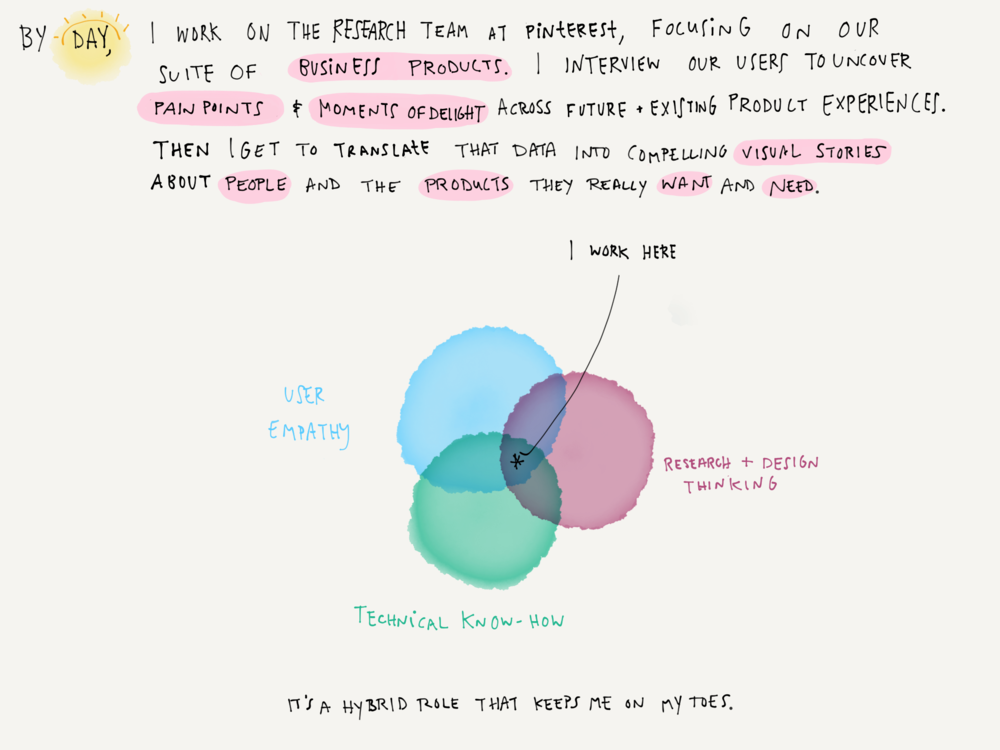 BY DAY, I WORK ON THE RESEARCH TEAM AT PINTEREST, FOCUSING ON OUR
SUITE OF BUSINESS PRODUCTS. I INTERVIEW OUR USERS TO UNCOVER
PAIN POINTS & MOMENTS OF DELIGHT ACROSS FUTURE + EXISTING PRODUCT EXPERIENCES.
THEN I GET TO TRANSLATE THAT DATA INTO COMPELLING VISUAL STORIES
ABOUT PEOPLE AND THE PRODUCTS THEY REALLY WANT AND NEED.
I WORK HERE
USER
EMPATHY
*
RESEARCH + DESIGN
THINKING
TECHNICAL KNOW-HOW
IT'S A HYBRID ROLE THAT KEEPS ME ON MY TOES.